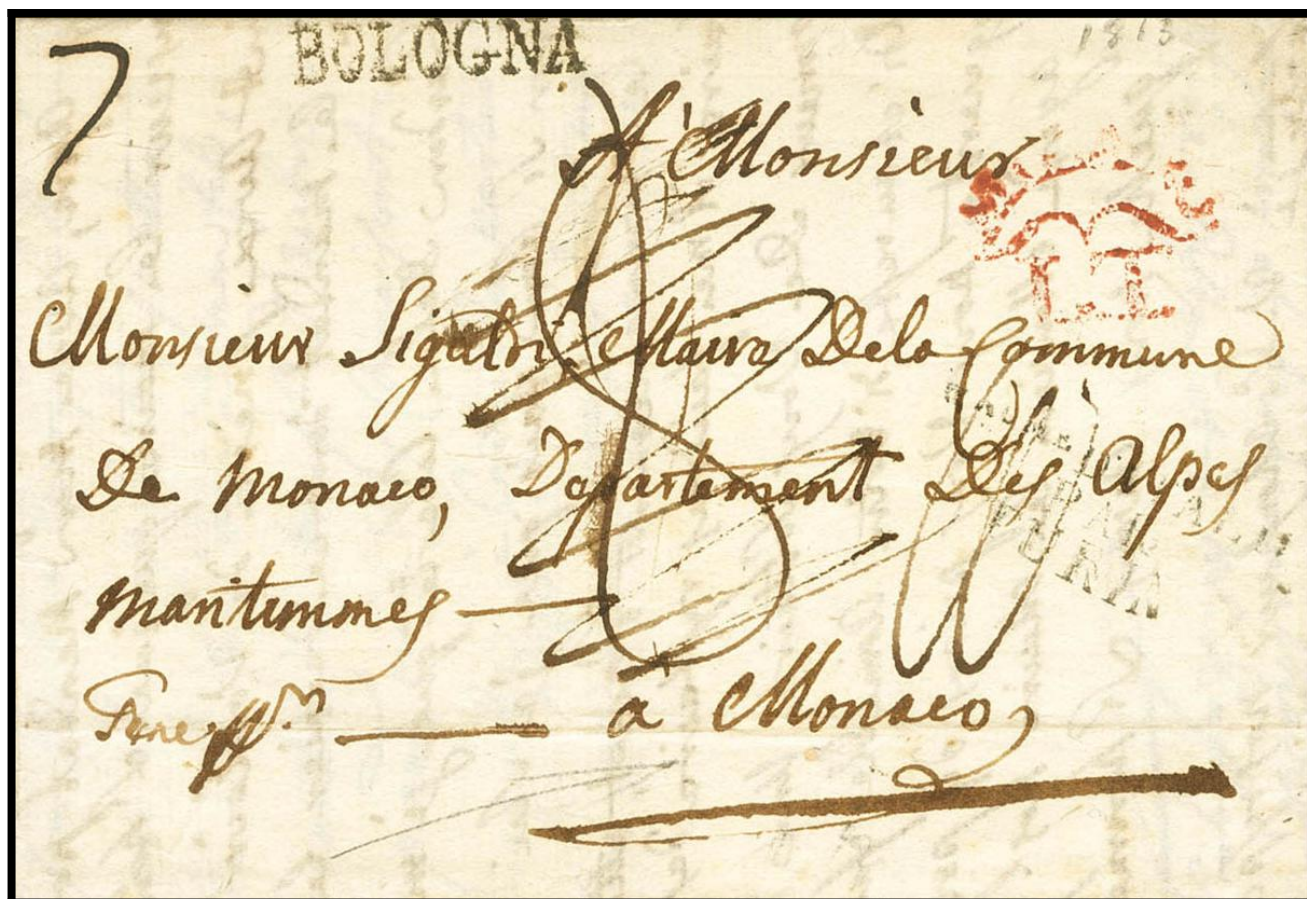 7
BOLOGNA
1813
A' Monsieur
L.I.
Monsieur Maire De la Commune
De Monaco, Departement Des Alpes
maritimmes —
— à Monaco,